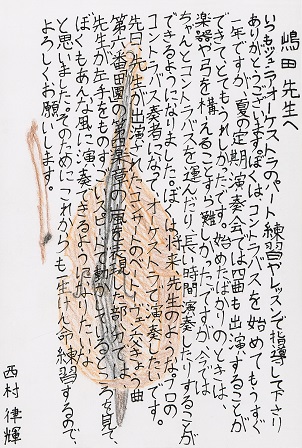 嶋田先生へ
いつもジュニアオーケストラのパート練習やレッスンで指導して下さり
ありがとうございます。ぼくは、コントラバスを始めてもうすぐ
一年ですが、夏の定期演奏会では四曲も出演することが
できて、とてもうれしかったです。始めたばかりのときは、
楽器や弓を構えることすら難しかったですが、今では
ちゃんとコントラバスを運んだり、長い時間演奏したりすることが
できるようになりました。ぼくは将来、先生のような、プロの
コントラバス奏者になってオーケストラで演奏したいです。
先日、先生が出演されたコンサートのベートーヴェン交きょう曲
第六番田園の第四楽章の嵐を表現した部分では、
先生が左手をものすごいスピードで動かしているところを見て、
ぼくもあんな風に演奏できるようになりたいな
と思いました。そのために、これからも一生けん命練習するので、
よろしくお願いします。
西村律輝